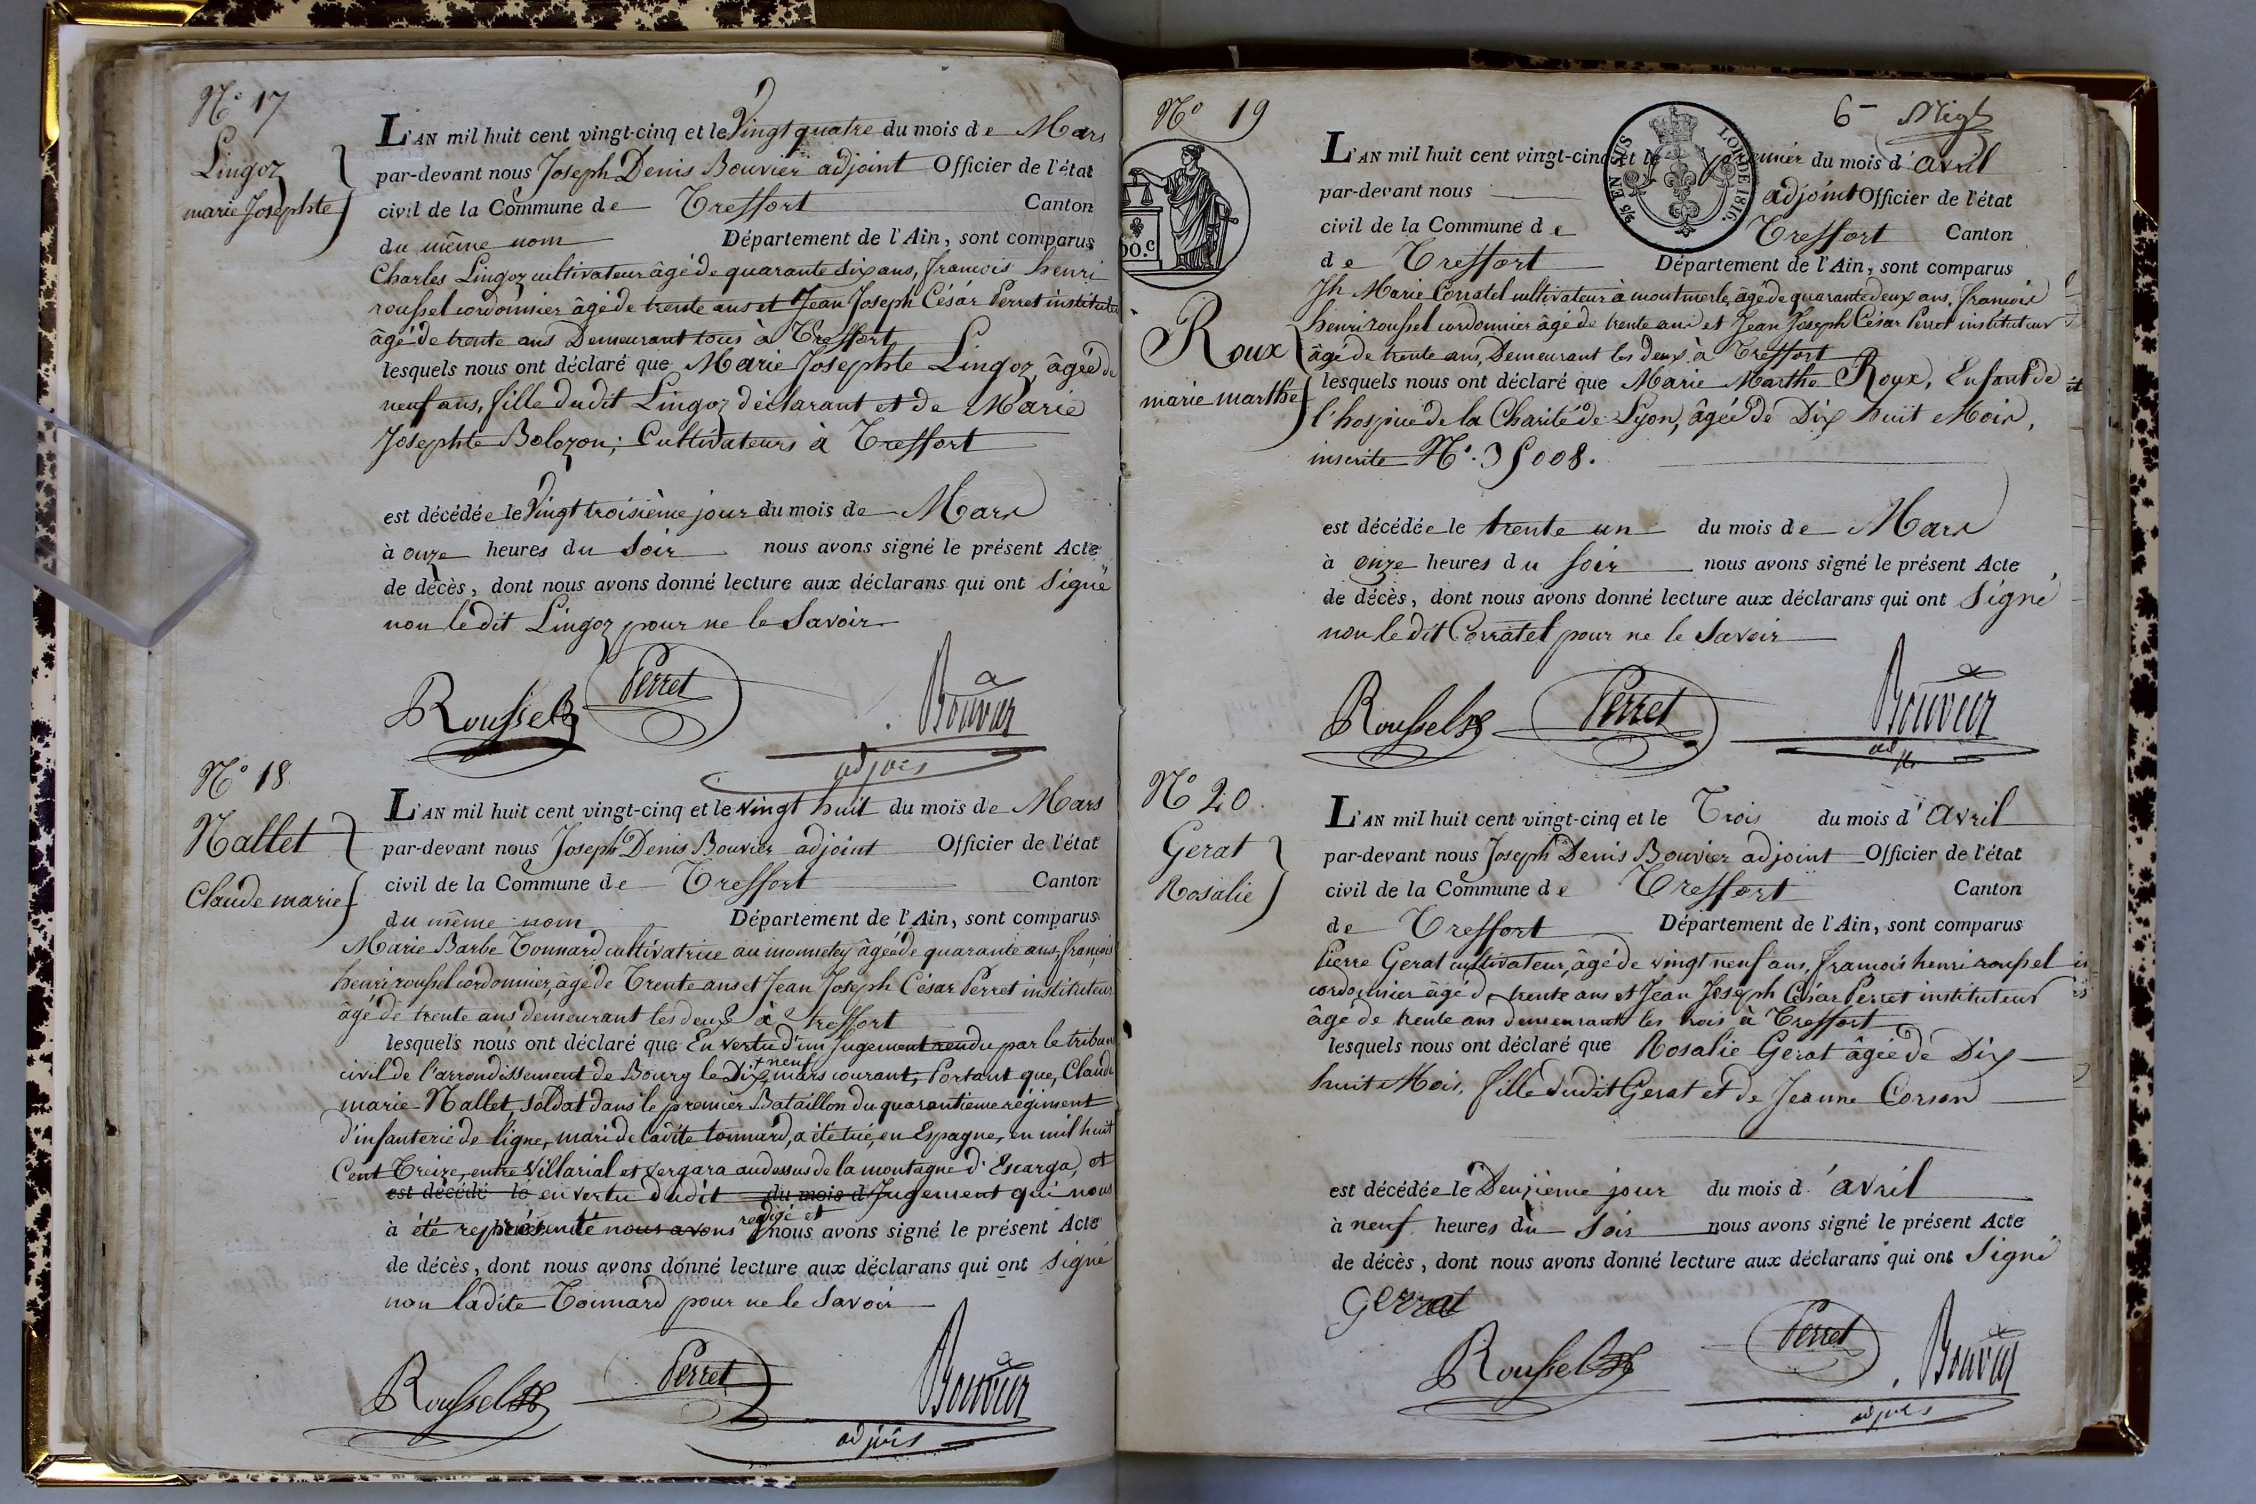 N.° 17
Lingoz
marie Josephte
L'AN mil huit cent vingt-cinq et le Vingt quatre du mois de Mars
par-devant nous Joseph Denis Bouvier adjoint Officier de l'état
civil de la Commune de Treffort Canton
du même nom Département de l'Ain, sont comparus
Charles Lingoz cultivateur âgé de quarante six ans, francois henri
roussel cordonnier âgé de trente ans et Jean Joseph César Perret instituteur
âgé de trente ans Demeurant tous à Treffort
lesquels nous ont déclaré que Marie Josephte Lingoz, âgée de
neuf ans, fille dudit Lingoz déclarant et de Marie
Josephte Bolozon, Cultivateurs à Treffort
est décédée le Vingt troisième jour du mois de Mars
à onze heures du Soir nous avons signé le présent Acte
de décès, dont nous avons donné lecture aux déclarans qui ont Signé
non ledit Lingoz pour ne le Savoir
Roussel Perret Bouvier
adjoint
N.° 18.
Nallet
Claude marie
L'AN mil huit cent vingt-cinq et le vingt huit du mois de Mars
par-devant nous Joseph Denis Bouvier adjoint Officier de l'état
civil de la Commune de Treffort Canton
du même nom Département de l'Ain, sont comparus
Marie Barbe Tonnard cultivatrice au âgée de quarante ans, françois
henri roussel cordonnier, âgé de Trente ans et Jean Joseph César Perret instituteur
âgé de trente ans demeurant les deux à treffort
lesquels nous ont déclaré que En vertu d'un Jugement rendu par le tribun
civil de l'arrondissement de Bourg le Dix neuf mars courant, Portant que, Claude
marie Nallet, soldat dans le premier Bataillon du quarantieme regiment
d'infanterie de ligne, mari de ladite tonnard, a été tué, en Espagne, en mil huit
Cent Treize, entre Villarial et Vergara audessus de la montagne d'Escarga, et
est décédé le en vertu dudit du mois d Jugement qui nous
à été représenté nous avons redigé et nous avons signé le présent Acte
de décès, dont nous avons donné lecture aux déclarans qui ont signé
non ladite Tonnard pour ne le Savoir
Roussel Perret Bouvier
adjoint
N.° 19
6
Roux
marie marthe
L'AN mil huit cent vingt-cinq et le premier du mois d'avril
par-devant nous adjoint Officier de l'état
civil de la Commune de Treffort Canton
de Treffort Département de l'Ain, sont comparus
Jh Marie Corratel cultivateur à montmerle, âgé de quarante deux ans, francois
henri roussel cordonnier âgé de trente ans et Jean Joseph César Perret instituteur
âgé de trente ans, Demeurant les deux à Treffort
lesquels nous ont déclaré que Marie Marthe Roux, Enfant de
l'hospice de la Charité de Lyon, âgée de Dix huit Mois,
inscrite N.° 35008.
est décédée le trente un du mois de Mars
à onze heures du soir nous avons signé le présent Acte
de décès, dont nous avons donné lecture aux déclarans qui ont Signé
non le dit Corratel pour ne le Savoir
Roussel Perret Bouvier
N.° 20.
Gerat
Rosalie
L'AN mil huit cent vingt-cinq et le Trois du mois d'avril
par-devant nous Joseph Denis Bouvier adjoint Officier de l'état
civil de la Commune de Treffort Canton
de Treffort Département de l'Ain, sont comparus
Pierre Gerat cultivateur, âgé de vingt neuf ans, francois henri roussel
cordonnier âgé de trente ans et Jean Joseph César Perret instituteur
âgé de trente ans demeurant les trois à Treffort
lesquels nous ont déclaré que Rosalie Gerat âgée de Dix
huit Mois, fille dudit Gerat et de Jeanne Corson
est décédée le Deuxième jour du mois d'avril
à neuf heures du Soir nous avons signé le présent Acte
de décès, dont nous avons donné lecture aux déclarans qui ont Signé
Gerrat
Roussel Perret Bouvier
adjoint